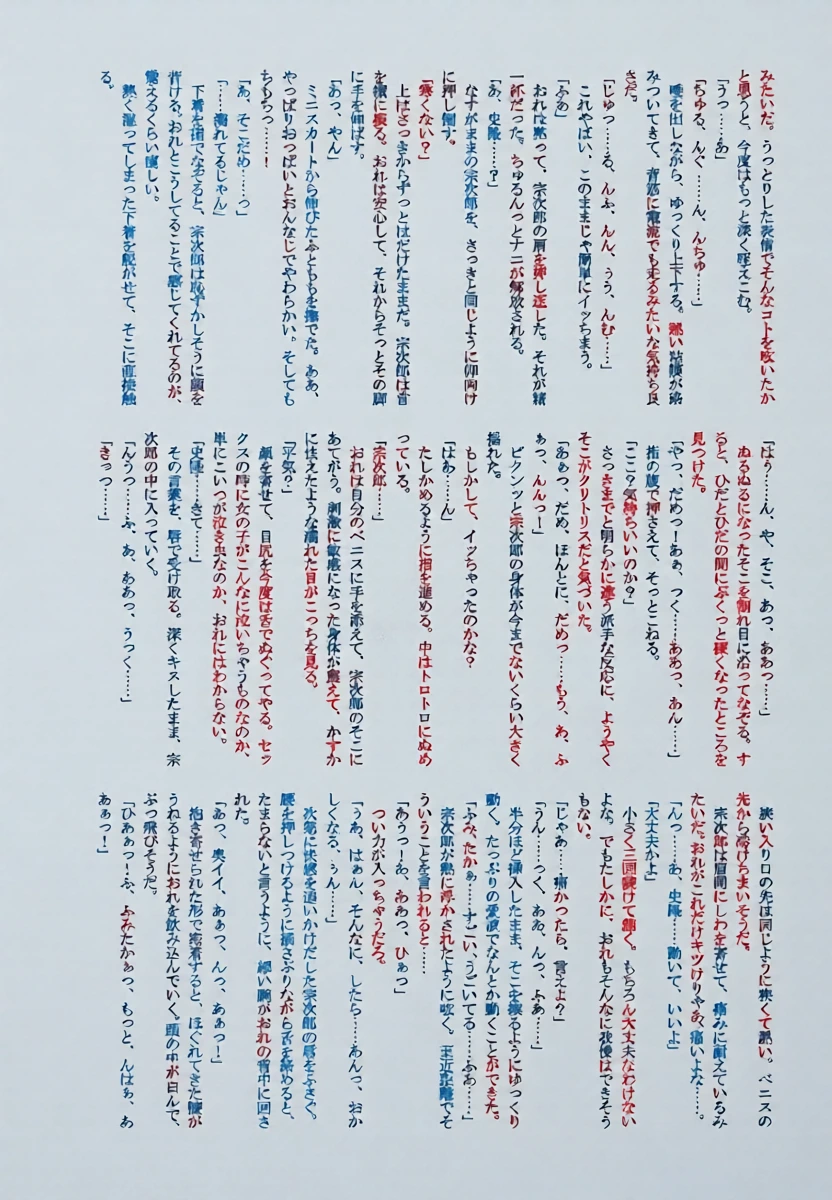 みたいだ。うっとりした表情でそんなコトを呟いたか
と思うと、今度はもっと深く咥えこむ。
「うっ……あ」
「ちゅる、んぐ……ん、んちゅ……」
唾を出しながら、ゆっくり上下する。熱い粘膜が絡
みついてきて、背筋に電流でも走るみたいな気持ち良
さだ。
「じゅっ……る、んふ、んん、ぅう、んむ……」
これやばい、このままじゃ簡単にイッちまう。
「ふぁ」
おれは黙って、宗次郎の肩を押し返した。それが精
一杯だった。ちゅるんっとナニが解放される。
「あ、史隆……?」
なすがままの宗次郎を、さっきと同じように仰向け
に押し倒す。
「寒くない?」
上はさっきからずっとはだけたままだ。宗次郎は首
を横に振る。おれは安心して、それからそっとその脚
に手を伸ばす。
「あっ、やん」
ミニスカートから伸びたふとももを撫でた。ああ、
やっぱりおっぱいとおんなじでやわらかい。そしても
ちもちっ……!
「あ、そこだめ……っ」
「……濡れてるじゃん」
下着を指でなぞると、宗次郎は恥ずかしそうに顔を
背ける。おれとこうしてることで感じてくれてるのが、
震えるくらい嬉しい。
熱く湿ってしまった下着を脱がせて、そこに直接触
る。
「はぅ……ん、や、そこ、あっ、ああっ……」
ぬるぬるになったそこを割れ目に沿ってなぞる。す
ると、ひだとひだの間にぷくっと硬くなったところを
見つけた。
「やっ、だめっ!あぁ、つく……ああっ、あん……」
指の腹で押さえて、そっとこねる。
「ここ?気持ちいいのか?」
さっきまでと明らかに違う派手な反応に、ようやく
そこがクリトリスだと気づいた。
「あぁっ、だめ、ほんとに、だめっ……もう、わ、ふ
ぁっ、んんっ!」
ビクンッと宗次郎の身体が今までないくらい大きく
揺れた。
もしかして、イッちゃったのかな?
「はあ……ん」
たしかめるように指を進める。中はトロトロにぬめ
っている。
「宗次郎……」
おれは自分のペニスに手を添えて、宗次郎のそこに
あてがう。刺激に敏感になった身体が震えて、かすか
に怯えたような濡れた目がこっちを見る。
「平気?」
顔を寄せて、目尻を今度は舌でぬぐってやる。セッ
クスの時に女の子がこんなに泣いちゃうものなのか、
単にこいつが泣き虫なのか、おれにはわからない。
「史隆……きて……」
その言葉を、唇で受け取る。深くキスしたまま、宗
次郎の中に入っていく。
「んうっ……ふ、あ、ああっ、うっく……」
「きっつ……」
狭い入り口の先は同じように狭くて熱い。ペニスの
先から溶けちまいそうだ。
宗次郎は眉間にしわを寄せて、痛みに耐えているみ
たいだ。おれがこれだけキツけりゃあ、痛いよな……。
「んっ……あ、史隆……動いて、いいよ」
「大丈夫かよ」
小さく三回続けて頷く。もちろん大丈夫なわけない
よな。でもたしかに、おれもそんなに我慢はできそう
もない。
「じゃあ……痛かったら、言えよ?」
「うん……っく、ああ、んっ、ふあ……」
半分ほど挿入したまま、そこを擦るようにゆっくり
動く。たっぷりの愛液でなんとか動くことができた。
「ふみ、たかぁ……すごい、うごいてる……ふあ……」
宗次郎が熱に浮かされたように呟く。至近距離でそ
ういうことを言われると……
「あうっ!あ、ああっ、ひぁっ」
つい力が入っちゃうだろ。
「うあ、はぁん、そんなに、したら……あんっ、おか
しくなる、ぅん……」
次第に快感を追いかけだした宗次郎の唇をふさぐ。
腰を押しつけるように揺さぶりながら舌を絡めると、
たまらないと言うように、細い腕がおれの背中に回さ
れた。
「あっ、奥イイ、あぁっ、んっ、あぁっ!」
抱き寄せられた形で密着すると、ほぐれてきた膣が
うねるようにおれを飲み込んでいく。頭の中が白んで、
ぶっ飛びそうだ。
「ひあぁっ!ふ、ふみたかぁっ、もっと、んはぁ、あ
あぁっ!」